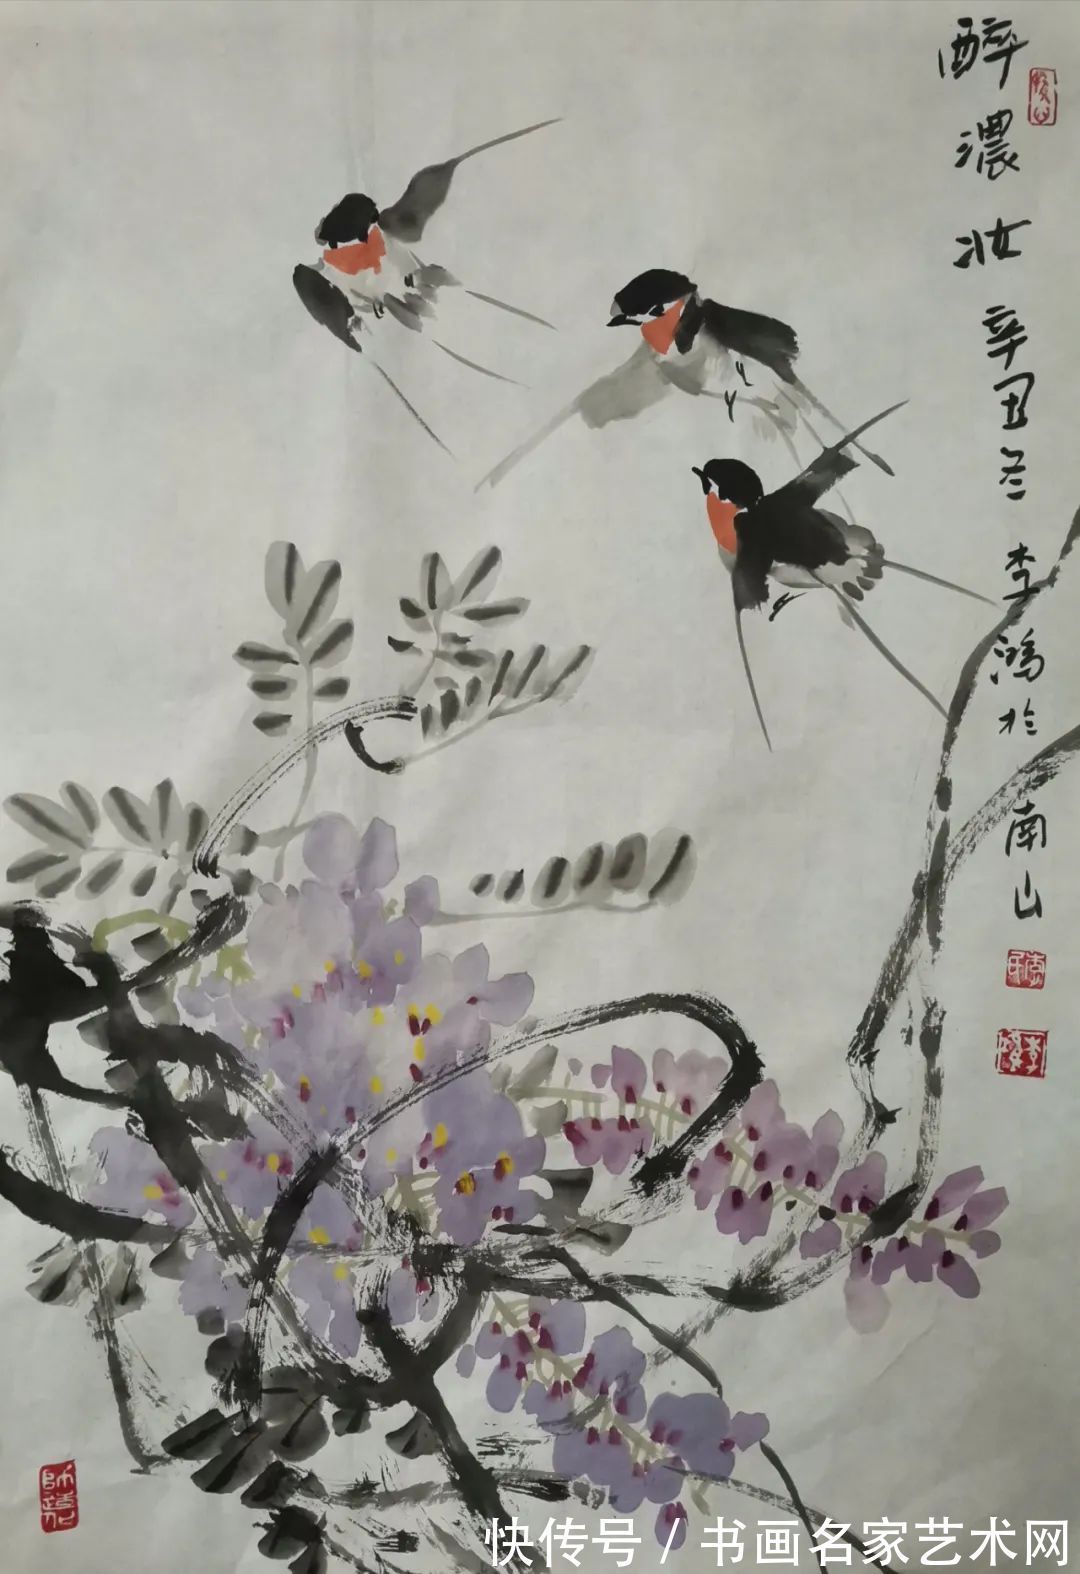 醉濃妆 辛丑冬 李鴻於南山
师造化
快传号 / 书画名家艺术网